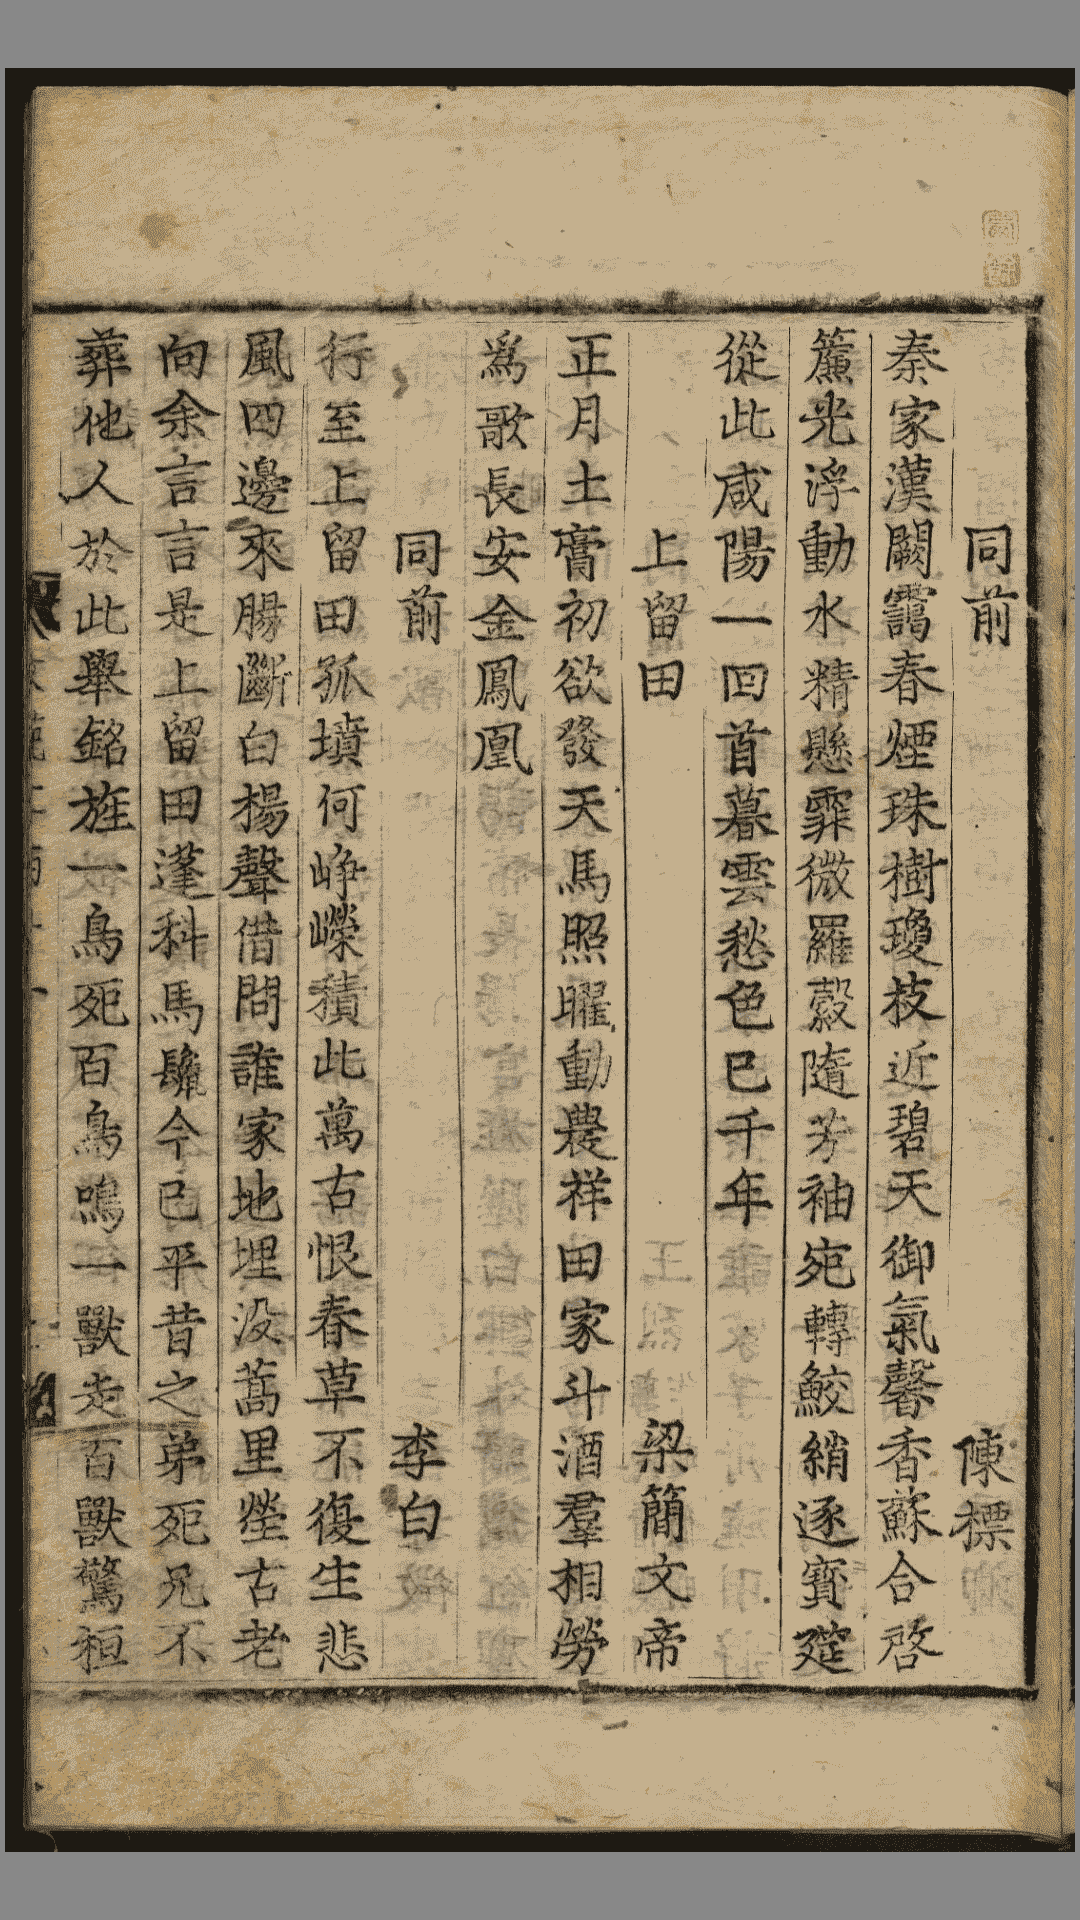 同前 陳標
秦家漢闕靄春煙珠樹瓊枝近碧天御氣馨香蘇合啓
簾光浮動水精懸霏微羅縠隨芳袖宛轉鮫綃逐寳筵
從此咸陽一回首暮雲愁色已千年
上留田 梁簡文帝
正月土膏初欲發天馬照曜動農祥田家斗酒羣相勞
爲歌長安金鳳凰
同前 李白
行至上留田孤墳何崢嶸積此萬古恨春草不復生悲
風四邊來腸斷白楊聲借問誰家地埋没蒿里塋古老
向余言言是上留田蓬科馬鬛今已平昔之弟死兄不
葬他人於此舉銘旌一鳥死百鳥鳴一獸走百獸驚桓